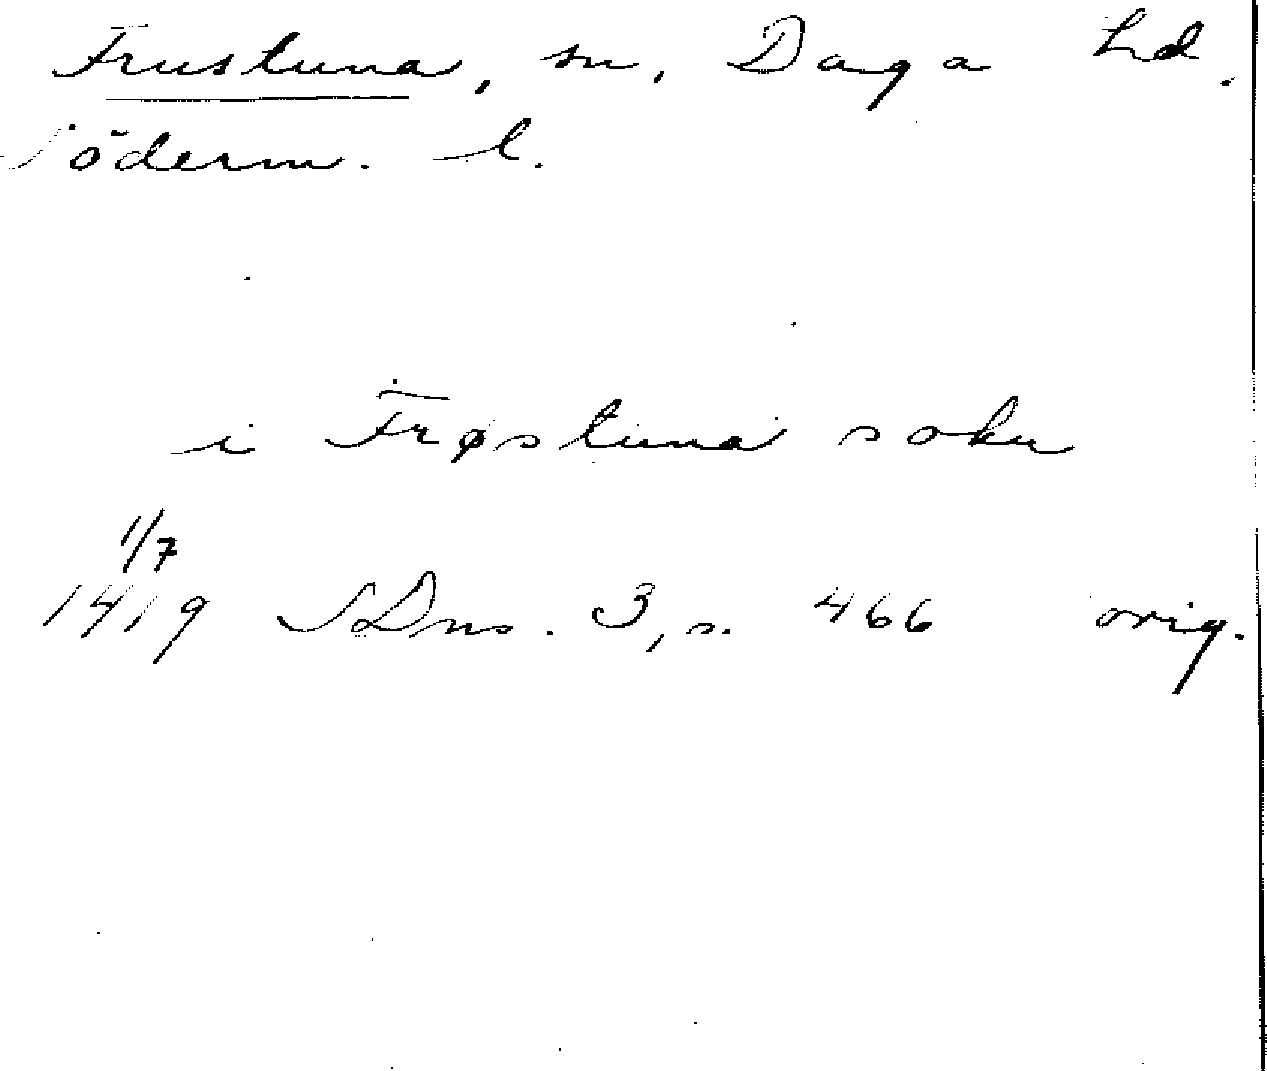 Frustuna, sn, Daga hd.
Söderm. l.
i Frøstuna sokn
1/7
1419 SDns. 3, s. 466 orig.